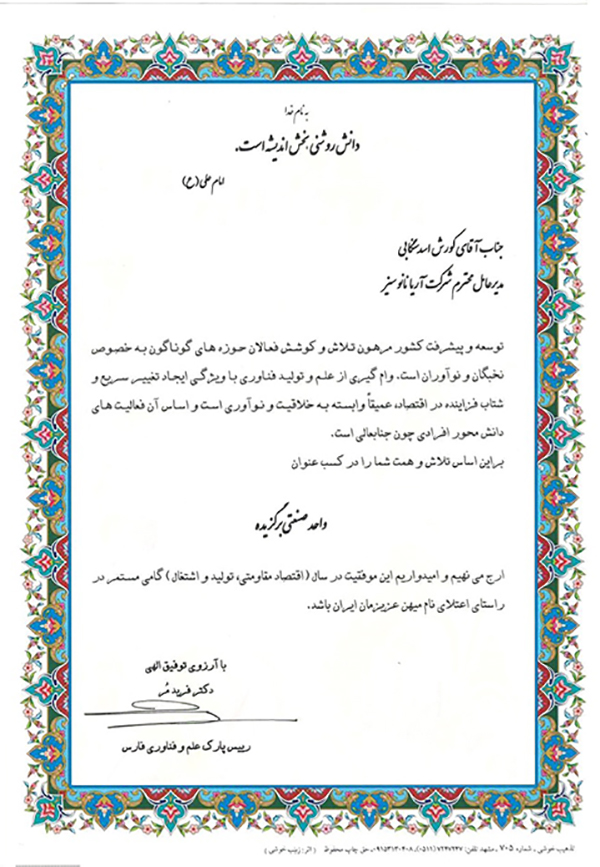 به نام خدا
دانش روشنی بخش اندیشه است.
امام علی (ع)
جناب آقای کورش اسدسنگابی
مدیرعامل محترم شرکت آریا نانو سنیز
توسعه و پیشرفت کشور مرهون تلاش و کوشش فعالان حوزه های گوناگون به خصوص
نخبگان و نوآوران است. وام گیری از علم و تولید فناوری با ویژگی ایجاد تغییر سریع و
شتاب فزاینده در اقتصاد، عمیقاً وابسته به خلاقیت و نوآوری است و اساس آن فعالیت های
دانش محور افرادی چون جنابعالی است.
براین اساس تلاش و همت شما را در کسب عنوان
واحد صنعتی برگزیده
ارج می نهیم و امیدواریم این موفقیت در سال (اقتصاد مقاومتی، تولید و اشتغال) گامی مستمر در
راستای اعتلای نام میهن عزیزمان ایران باشد.
با آرزوی توفیق الهی
دکتر فرید مُر
رییس پارک علم و فناوری فارس
تذهیب خوشی ـ شماره ۷۰۵ ـ مشهد تلفن: ۷۲۴۷۲۴۷ (۰۵۱۱) ـ ۰۹۱۵۳۱۳۰۴۰۸ ـ حق چاپ محفوظ (اثر: زینب خوشی)